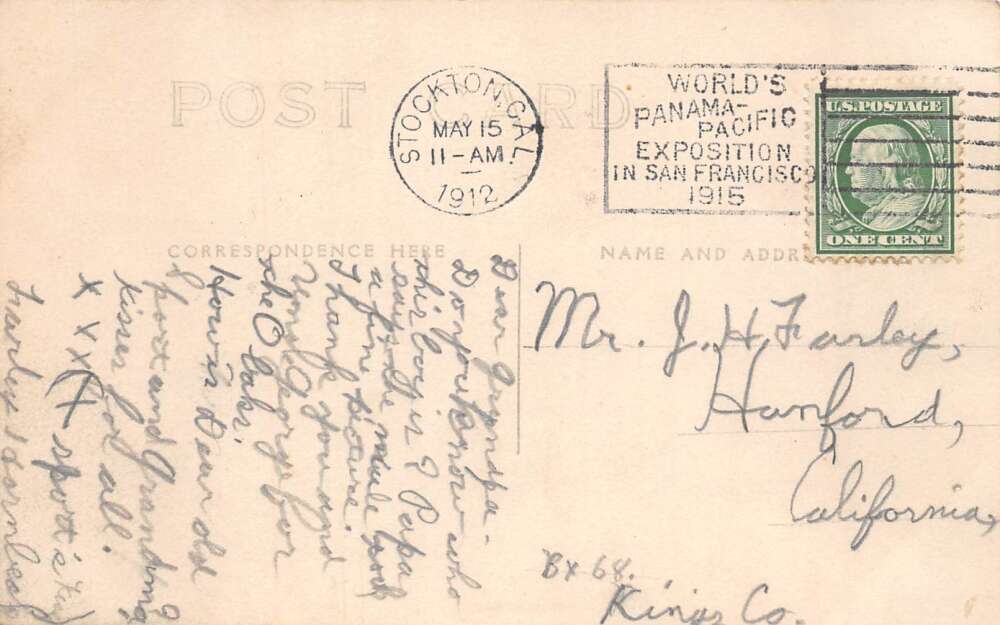 POST CARD
STOCKTON, CAL.
MAY 15
11-AM
1912
WORLD'S
PANAMA-
PACIFIC
EXPOSITION
IN SAN FRANCISCO
1915
U.S. POSTAGE
ONE CENT
CORRESPONDENCE HERE
NAME AND ADDR
Mr. J. H. Farley,
Hanford,
California,
Bx 68.
Kings Co.
Dear Grampa-
Do you know who
this boy is? Papa
says the mule took
a fine picture.
Thank you and
Uncle George for
the O baks.
How is Dear old
Spoot and Grandma,
Kisses for all.
X X X (X spoot's kiss)